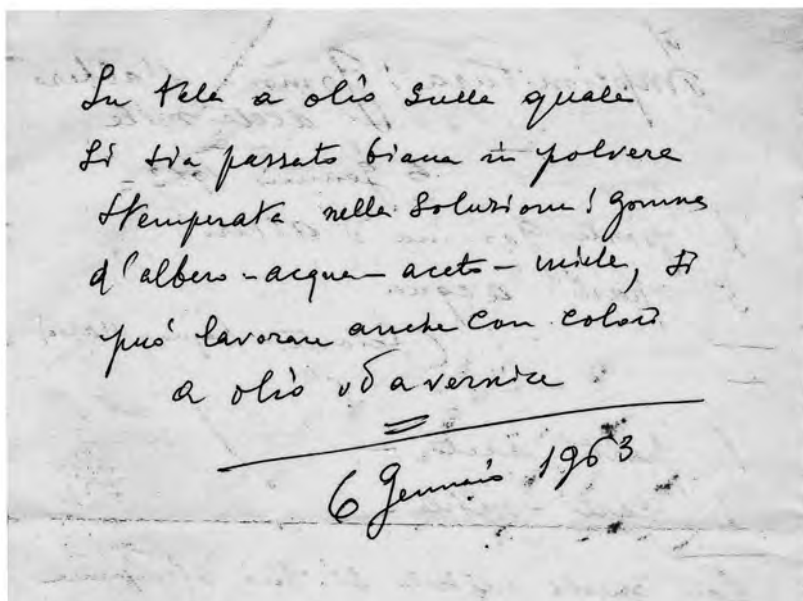 Su tela a olio sulla quale
si sia passato biacca in polvere
stemperata nella soluzione: gomma
d'albero - acqua - aceto - miele, si
può lavorare anche con colori
a olio od a vernice
6 Gennaio 1963